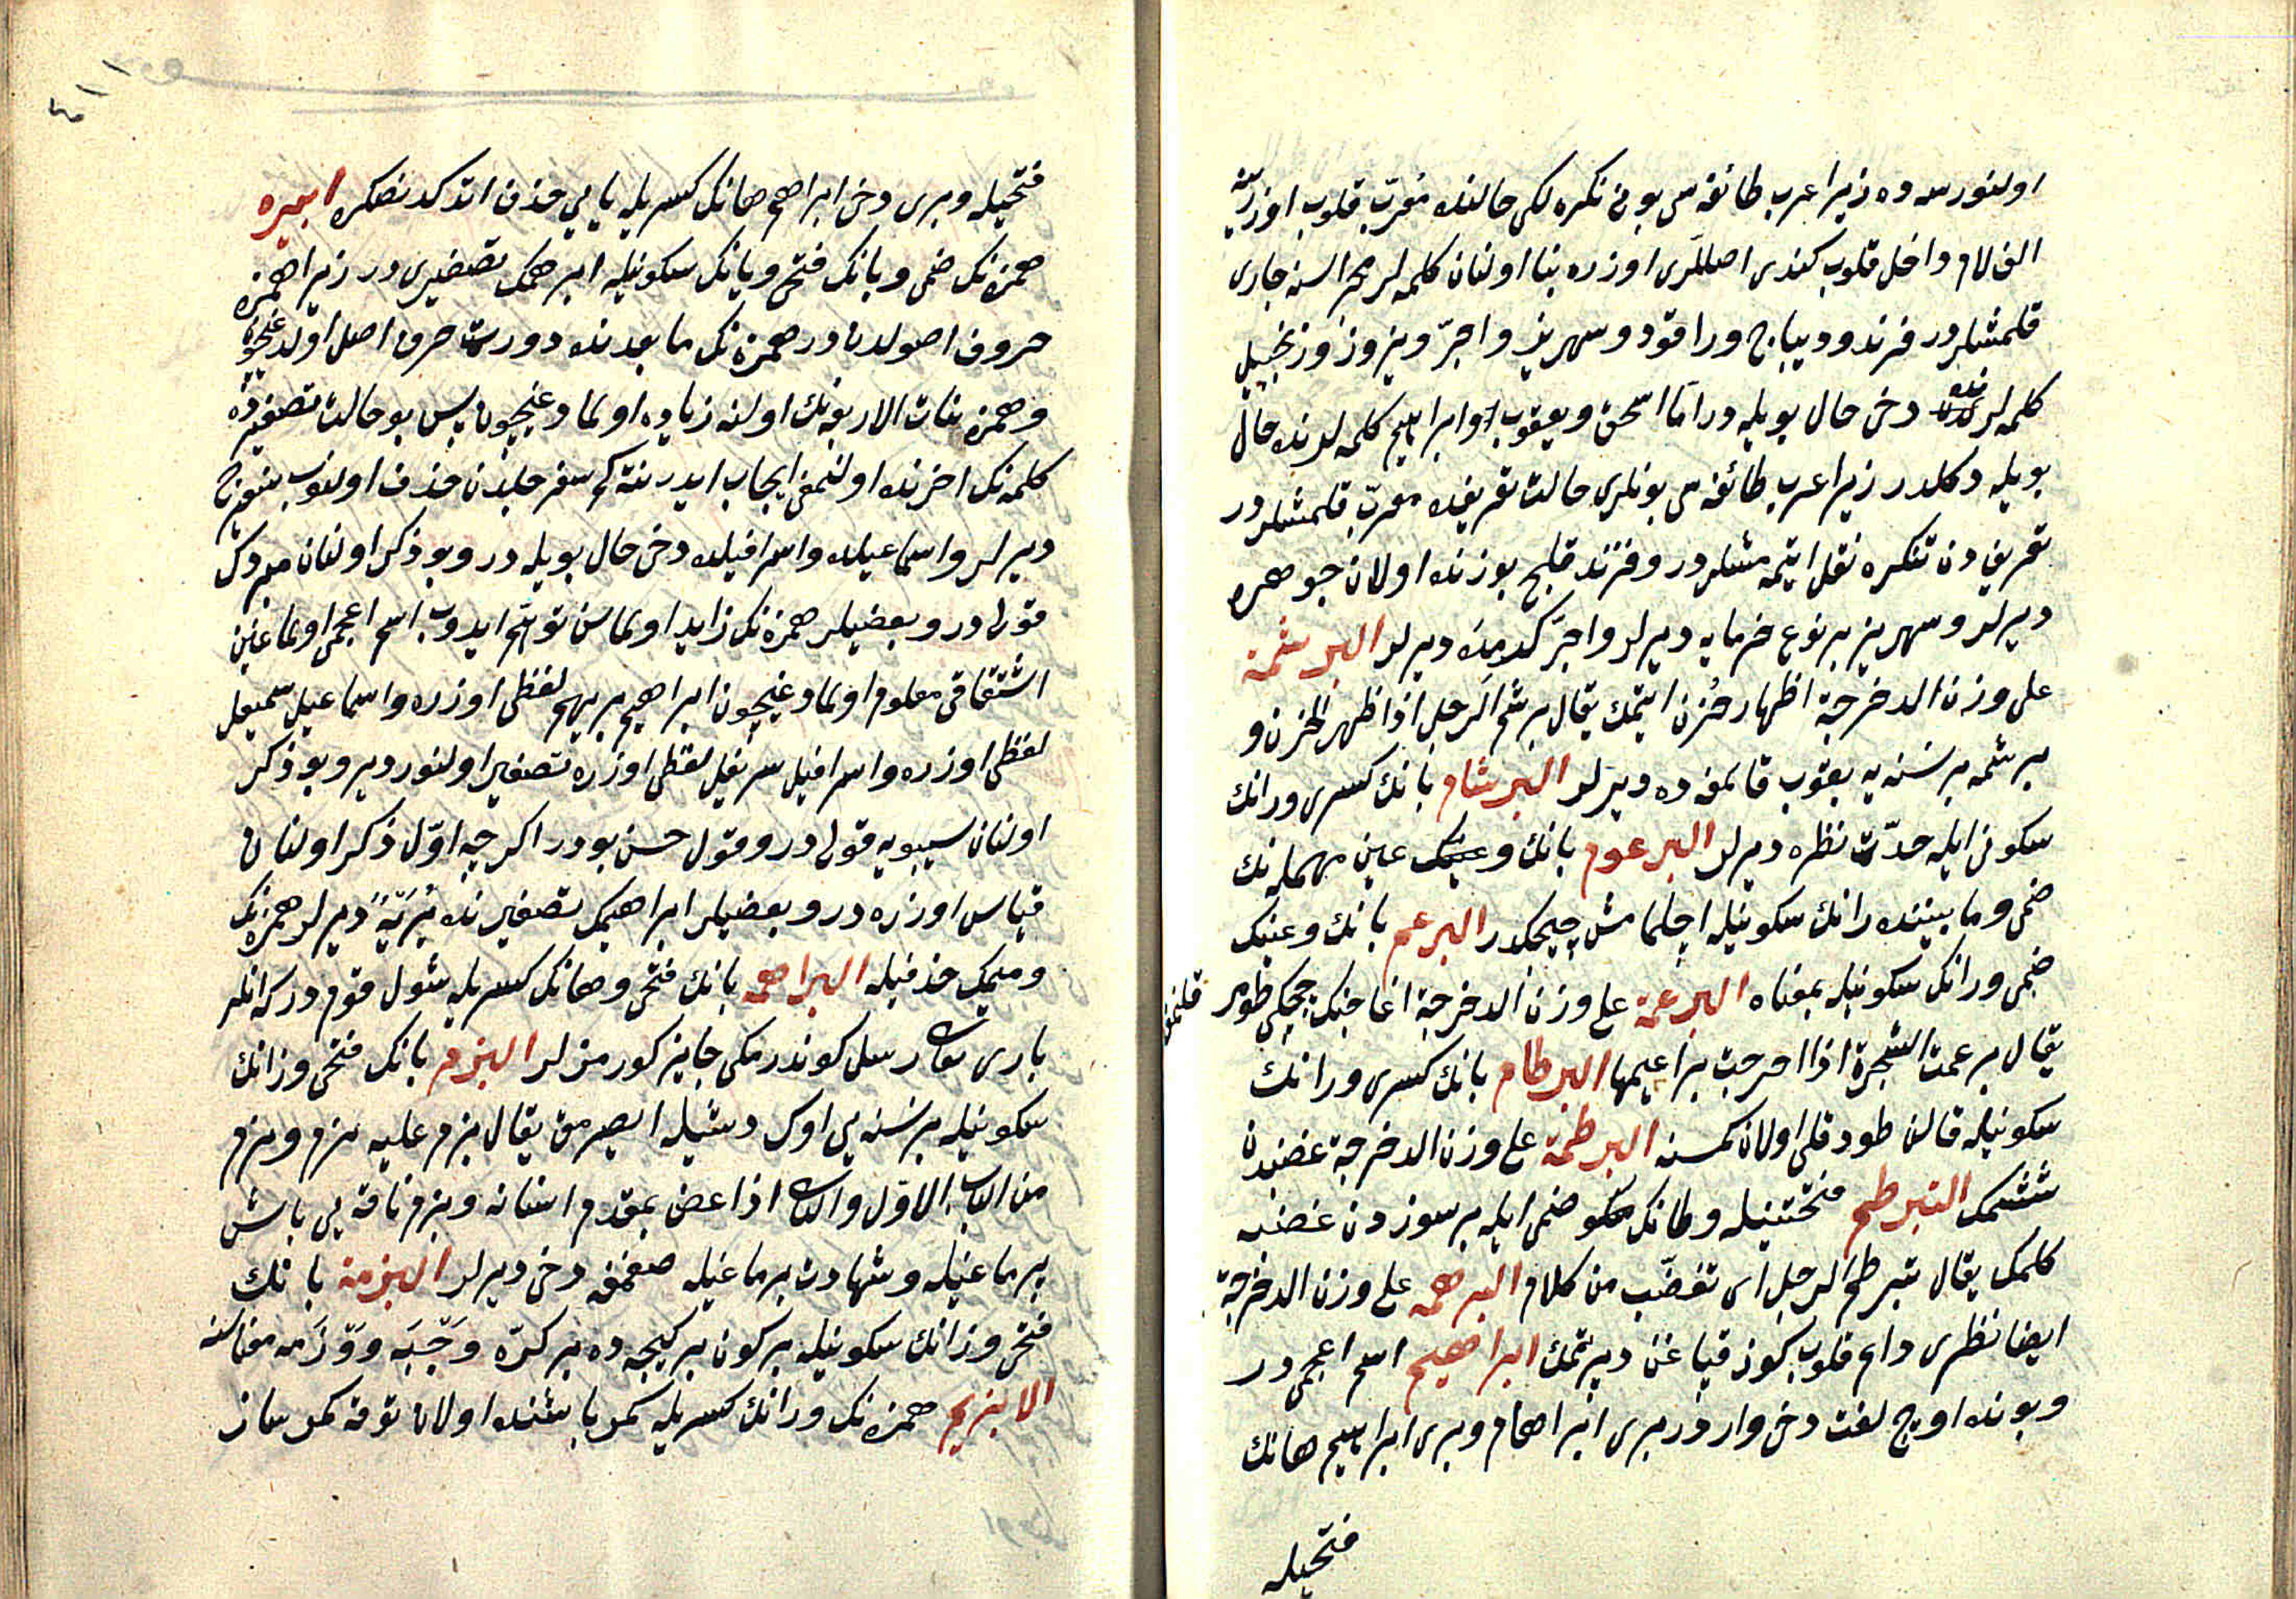 اولنورسه ده زیرا عرب طائفه سی بونی نکره لکی حالنده معرّب قلوب اوزرینه
الف لام داخل قلوب کندی اصللری اوزره بنا اولنان کلمه لر مجراسنه جاری
قلمشلردر فرند و دیباج و راقود و سهریز و اجرّ و نیروز و زنجبیل
کلمه لرنده دخی حال بویله در امّا اسحق و یعقوب و ابراهیم کلمه لرنده حال
بویله دکلدر زیرا عرب طائفه سی بونلری حالت تعریفده معرّب قلمشلردر
تعریفدن تنکره نقل ایتمه مشلردر و فرند قلیج یوزنده اولان جوهره
دیرلر و سهریز بر نوع خرمایه دیرلر و اجرّ کرمیده دیرلر البرشمة
علی وزن الدخرجة اظهار حُزن ایتمک یقال برشم الرجل اذا ظهر الحزن و
برشمه بر نسنه یه بقوب قالمغه ده دیرلر البرشام بانك کسری ورانك
سکونی ایله حدّت نظره دیرلر البرعوم بانك و عین مهمله نك
ضمی و مابیننده رانك سکونیله اچلمامش چیچکدر البرعم بانك و عینك
ضمی و رانك سکونیله بمعناه البرعمة علی وزن الدخرجة اغاجنك چچکی طومر قلنمق
یقال برعمت الشجرة اذا اخرجت براعیمها البرطام بانك کسری ورانك
سکونیله قالن طوداقلی اولان کمسنه البرطمة علی وزن الدخرجة غضبدن
ششمك التبرطم فتحتینله و طانك ضمی ایله بر سوزدن غضبه
کلمك یقال تبرطم الرجل ای تغضّب من کلام البرهمه علی وزن الدخرجة
ایضا نظری دائم قلوب کوز قپاغن دپرتمك ابراهیم اسم اعجمیدر
و بونده اوچ لغت دخی واردر بری ابراهام و بری ابراهیم هانك
فتحیله
فتحیله و بری دخی ابراهم هانك کسریله یایی حذف اتدکدنصکره ابیره
همزه نك ضمی و بانك فتحی و یانك سکونیله ابرهمك تصغیریدر زیرا همزه
حروف اصولدندر همزه نك مابعدنده دورت حرف اصل اولدغیچون
و همزه بنات الاربعه نك اولنه زیاده اولمادغیچون پس بو حالت تصغیرده
کلمه نك اخرنده اولنمغی ایجاب ایدر نته کم سفرجلدن حذف اولنوب سفیرج
دیرلر و اسماعیلده و اسرافیلده دخی حال بویله در و بو ذکر اولنان مبردك
قولیدر و بعضیلر همزه نك زاید اولماسن توهّم ایدوب اسم اعجمی اولماغین
اشتقاقی معلوم اولمادغیچون ابراهیم بریهم لفظی اوزره و اسماعیل سمیعل
لفظی اوزره و اسرافیل سریفل لفظی اوزره تصغیر اولنور دیر و بو ذکر
اولنان سیبویه قولیدر و قول حسن بودر اکرچه اوّل ذکر اولنان
قیاس اوزره در و بعضیلر ابراهیمك تصغیرنده بُرَیْهٌ دیرلر همزه نك
و میمك حذفیله البراهمه بانك فتحی و هانك کسریله شول قومدر که انلر
باری تعالی رسل کوندرمکی جایز کورمزلر البزم بانك فتحی و زانك
سکونیله بر نسنه یی اوك دشیله ایصرمق یقال بزم علیه یبزم و یبزم
من الباب الاوّل والثانی اذا عض بمقدم اسنانه و بزم ناقه یی باش
برماغیله و شهادت برماغیله صغمغه دخی دیرلر البزمة بانك
فتحی و زانك سکونیله بر کون بر کیجه ده بر کرّه وَجْبَه و وَزْمه معناسنه
الابزیم همزه نك و زانك کسریله کمر باشنده اولان توقه کمر ساز